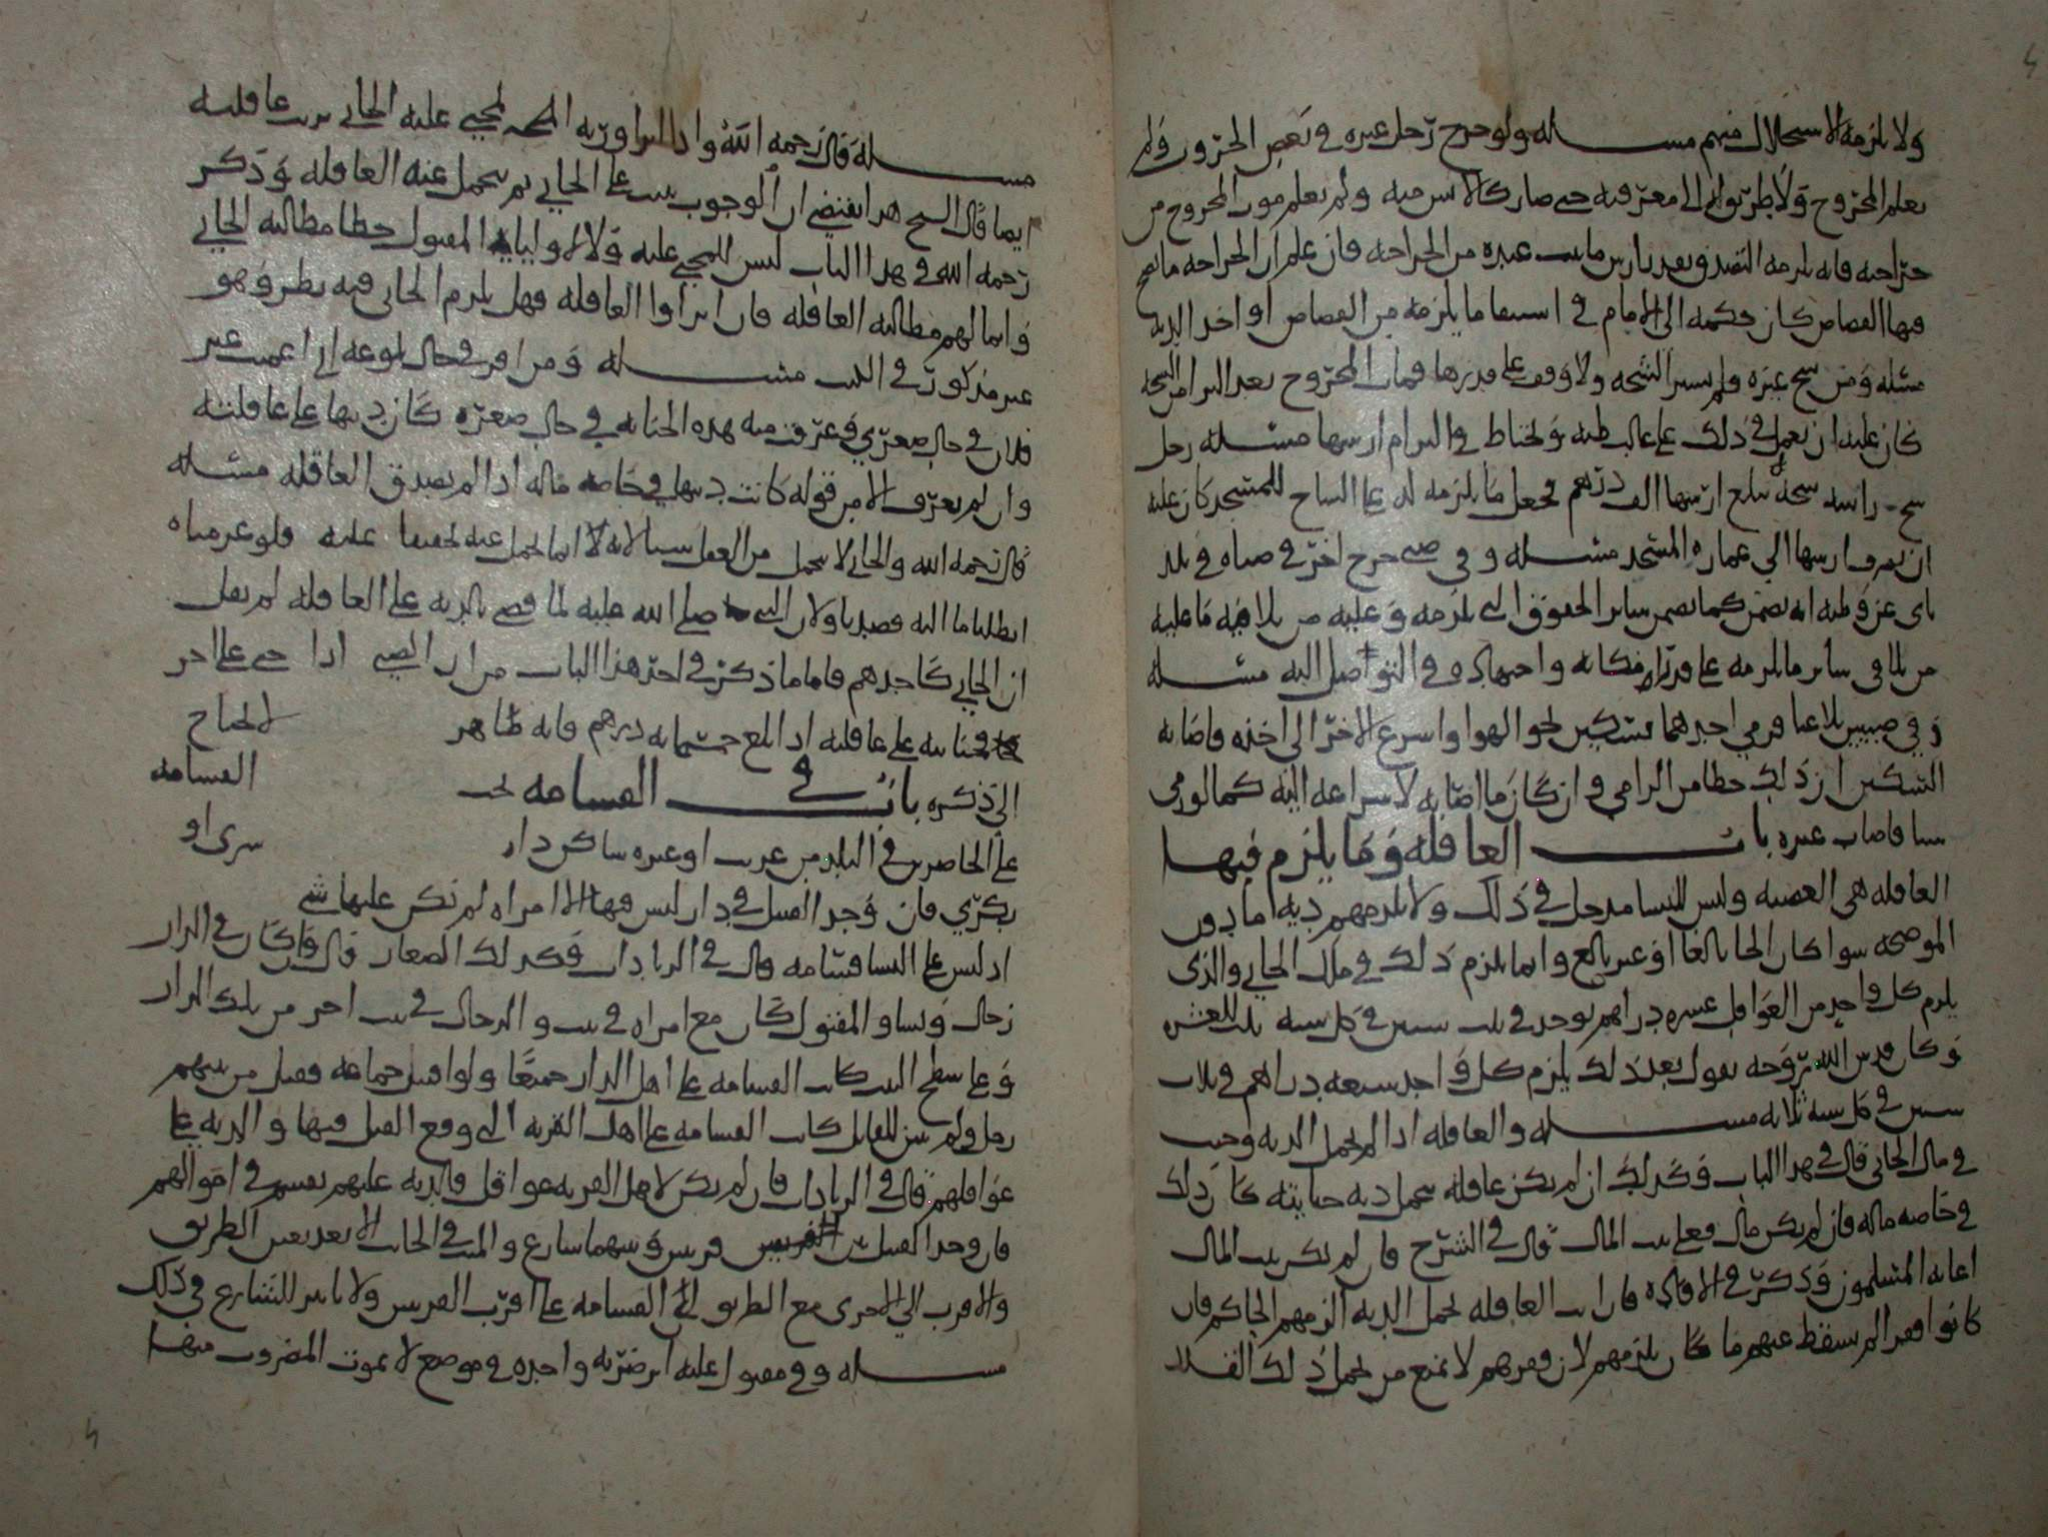 ولا يلزمه الاستحلال منهم مسله ولو جرح رجل غيره في بعض الحروب ولم
يعلم المجروح ولا طريق له الى معرفته حتى صار كالايس منه ولم يعلم موت المجروح من
جراحته فانه يلزمه التصدق بعد بارش ما ثبت عنده من الجراحه فان علم ان الجراحه مما يصح
فيها القصاص كان حكمه الى الامام في استيفا ما يلزمه من القصاص او اخذ الديه
مسله ومن شج غيره ولم يسبر الشجه ولا وقف على قدرها فمات المجروح بعد البرا من الشجه
كان عليه ان يعمل في ذلك على غالب ظنه ويحتاط في البرام ارشها مسله رجل
شج راسه شجه يبلغ ارشها الف درهم فجعل ما يلزمه له على الشاج للمسجد كان عليه
ان يصرف ارشها الى عماره المسجد مسله وفي صبي جرح اخر في صباه في بلد
ناى عن وطنه انه يضمن كما يضمن ساير الحقوق التي يلزمه وعليه من تلافيه ما عليه
من تلافي ساير ما يلزمه على قدر امكانه واجتهاده في التواصل اليه مسله
وفي صبيين تلاعبا فرمى احدهما بسكين نحو الهوا واسرع الاخر الى اخذه فاصابه
السكين ان ذلك خطا من الرامي وان كان ما اصابه لاسراعه اليه كما لو رمى
شيا فاصاب غيره باب العاقله وما يلزم فيها
العاقله هي العصبه وليس للنسا مدخل في ذلك ولا يلزمهم ديه ما دون
الموضحه سوا كان الجاني بالغا او غير بالغ وانما يلزم ذلك في مال الجاني والذي
يلزم كل واحد من العواقل عشره دراهم يوخذ في ثلث سنين في كل سنه ثلث العشره
وكان قدس الله روحه يقول بعد ذلك يلزم كل واحد تسعه دراهم في ثلاث
سنين في كل سنه ثلاثه مسله والعاقله اذا لم تحمل الديه وجبت
في مال الجاني قال في هذا الباب وكذلك ان لم يكن عاقله تحمل ديه جنايته كان ذلك
في خاصه ماله فان لم يكن مال فعلى بيت المال قال في الشرح فان لم يكن بيت المال
اعانه المسلمون وذكر في الافاده فان ابت العاقله تحمل الديه الزمهم الحاكم فان
كانوا فقرا لم يسقط عنهم ما كان يلزمهم لان فقرهم لا يمنع من تحمل ذلك القدر
مسله قال رحمه الله واذا ابرا ورثه المجني عليه الجاني برت عاقلته
ايضا قال الشيخ هذا يقتضي ان الوجوب يثبت على الجاني ثم يتحمل عنه العاقله وذكر
رحمه الله في هذا الباب ليس للمجني عليه ولا لاوليا المقتول خطا مطالبه الجاني
وانما لهم مطالبه العاقله فان ابراوا العاقله فهل يلزم الجاني فيه نظر وهو
غير مذكور في الكتب مسله ومن اقر في حال بلوغه اني اعميت عين
فلان في حال صغري وعرفت منه هذه الجنايه في حال صغره كان ديتها على عاقلته
وان لم يعرف الا من قوله كانت ديتها في خاصه ماله اذا لم يصدق العاقله مسله
قال رحمه الله والجاني لا يحمل من العقل شيا لانه انما يحمل عنه تخفيفا عليه فلو غرمناه
ابطلنا ما اليه قصدنا ولان النبي صلى الله عليه لما قضى بالديه على العاقله لم يقل
ان الجاني كاحدهم فاما ما ذكر في اخر هذا الباب من ان الصبي اذا جنى على اخر
فجنايته على عاقلته اذا بلغ خمسمايه درهم فانه ظاهر لا يحتاج
الى ذكره باب في القسامه تجب القسامه
على الحاضرين في البلد من غريب او غيره ساكن دار شرى او
بكرى فان وجد القتيل في دار ليس فيها الا امراه لم تكن عليها شي
اذ ليس على النسا قسامه قال في الزيادات وكذلك الصغار قال وان كان في الدار
رجال ونسا والمقتول كان مع امراه في بيت والرجال في بيت اخر من تلك الدار
وعلى سطح البيت كانت القسامه على اهل الدار جميعا ولو اقتتل جماعه فقتل من بينهم
رجل ولم يتبين القاتل كانت القسامه على اهل القريه التي وقع القتل فيها والديه على
عواقلهم قال في الزيادات فان لم يكن لاهل القريه عواقل فالديه عليهم يقسم في اموالهم
فان وجد القتيل بين قريتين وبينهما شارع والميت في الجانب الابعد بعض الطريق
والاقرب الى الاخرى مع الطريق ان القسامه على اقرب القريتين ولا تاثير للشارع في ذلك
مسله وفي مقتول عليه اثر ضربه واحده في موضع لا يموت المضروب منها